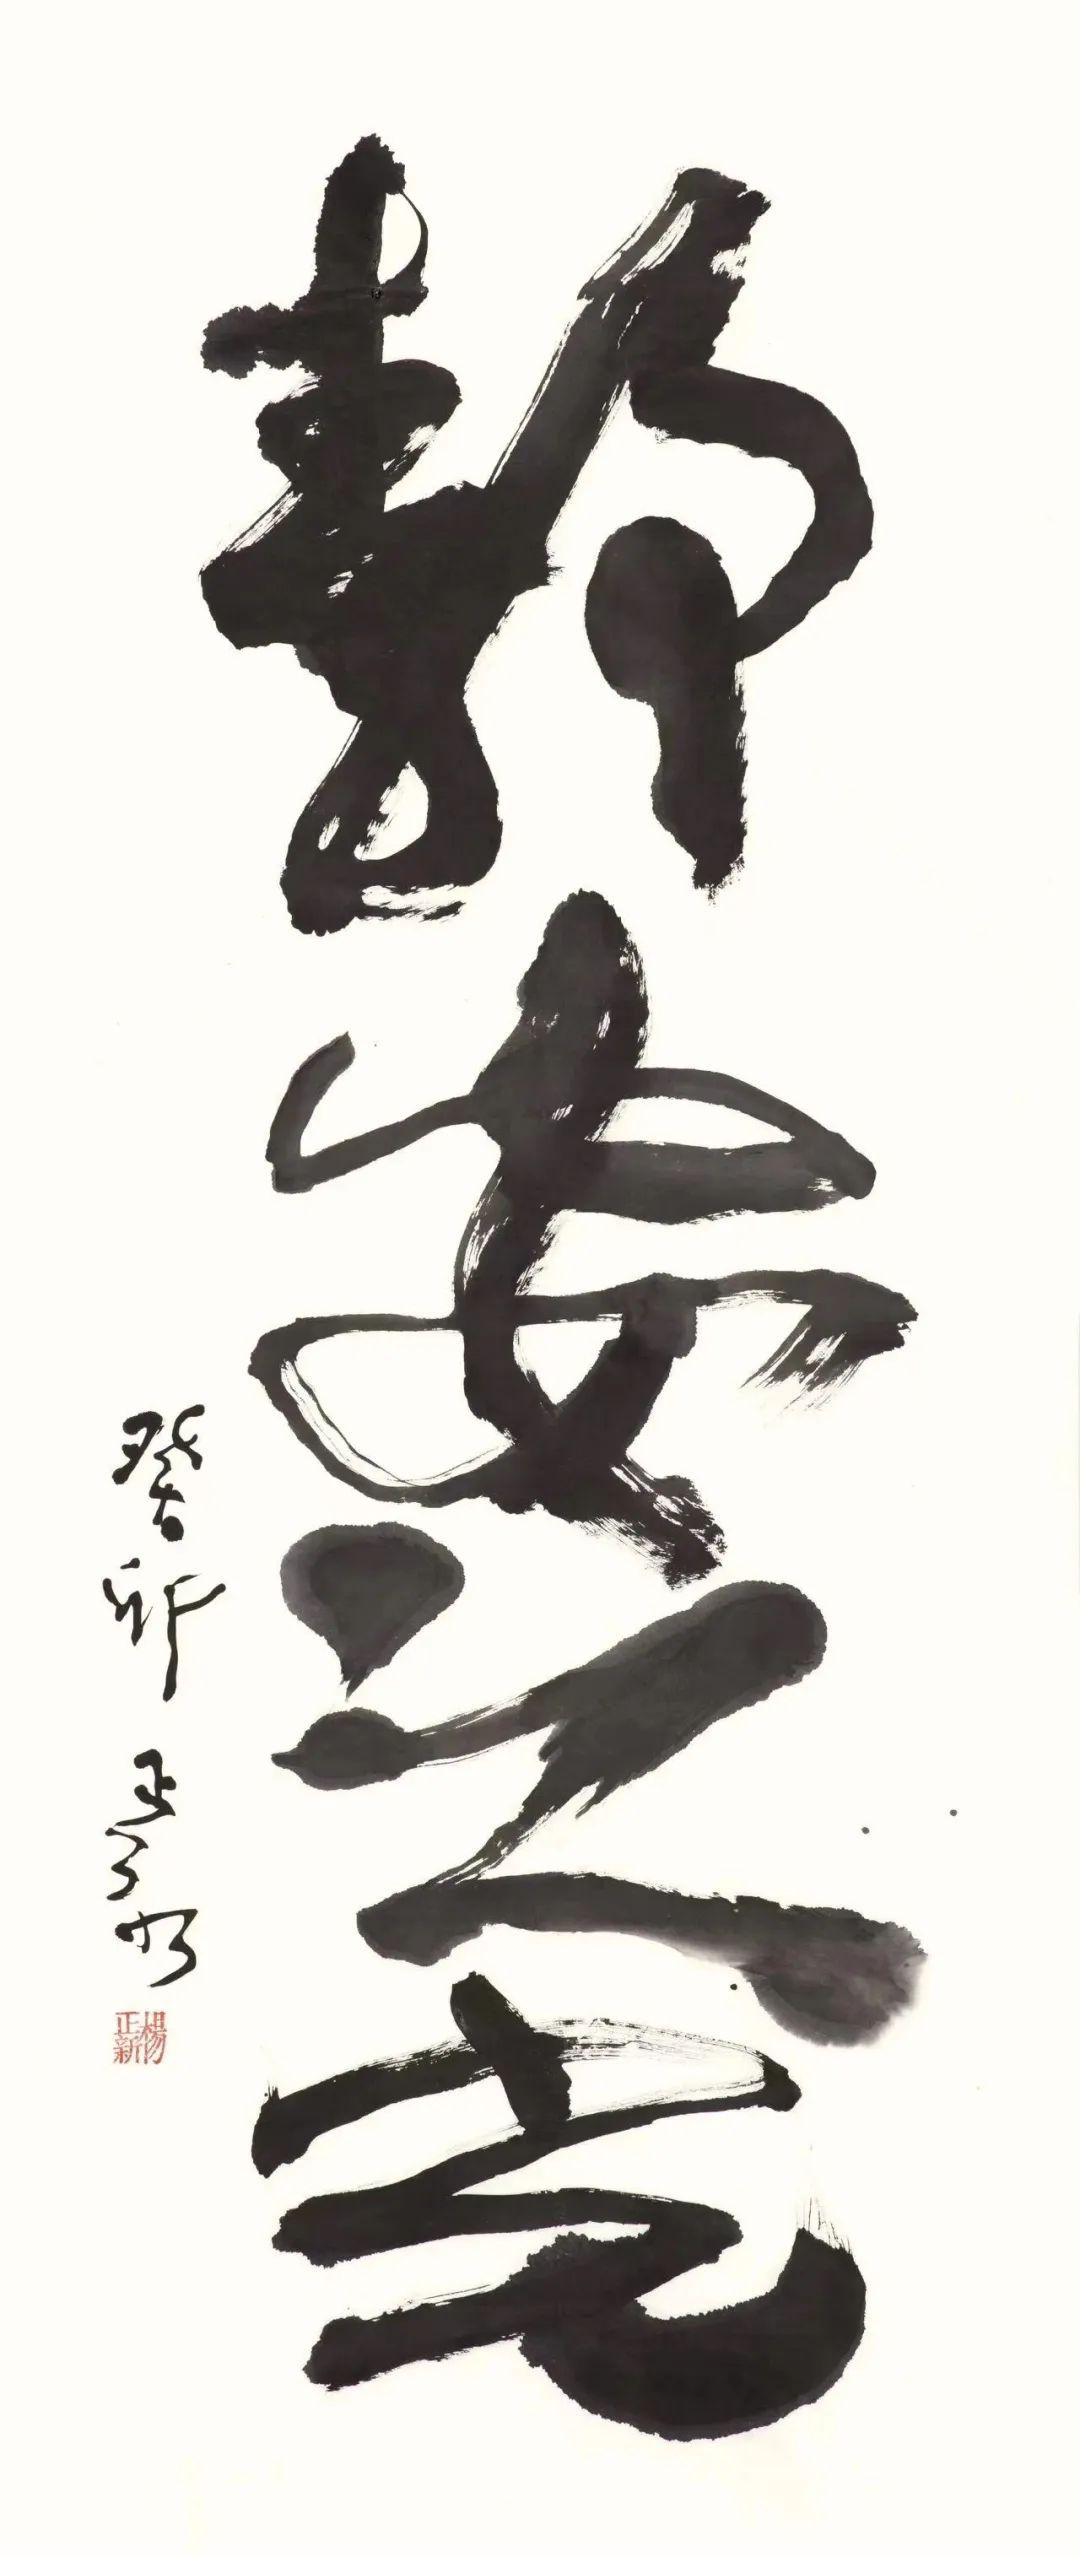 静安之宅
癸卯 正新
楊正新